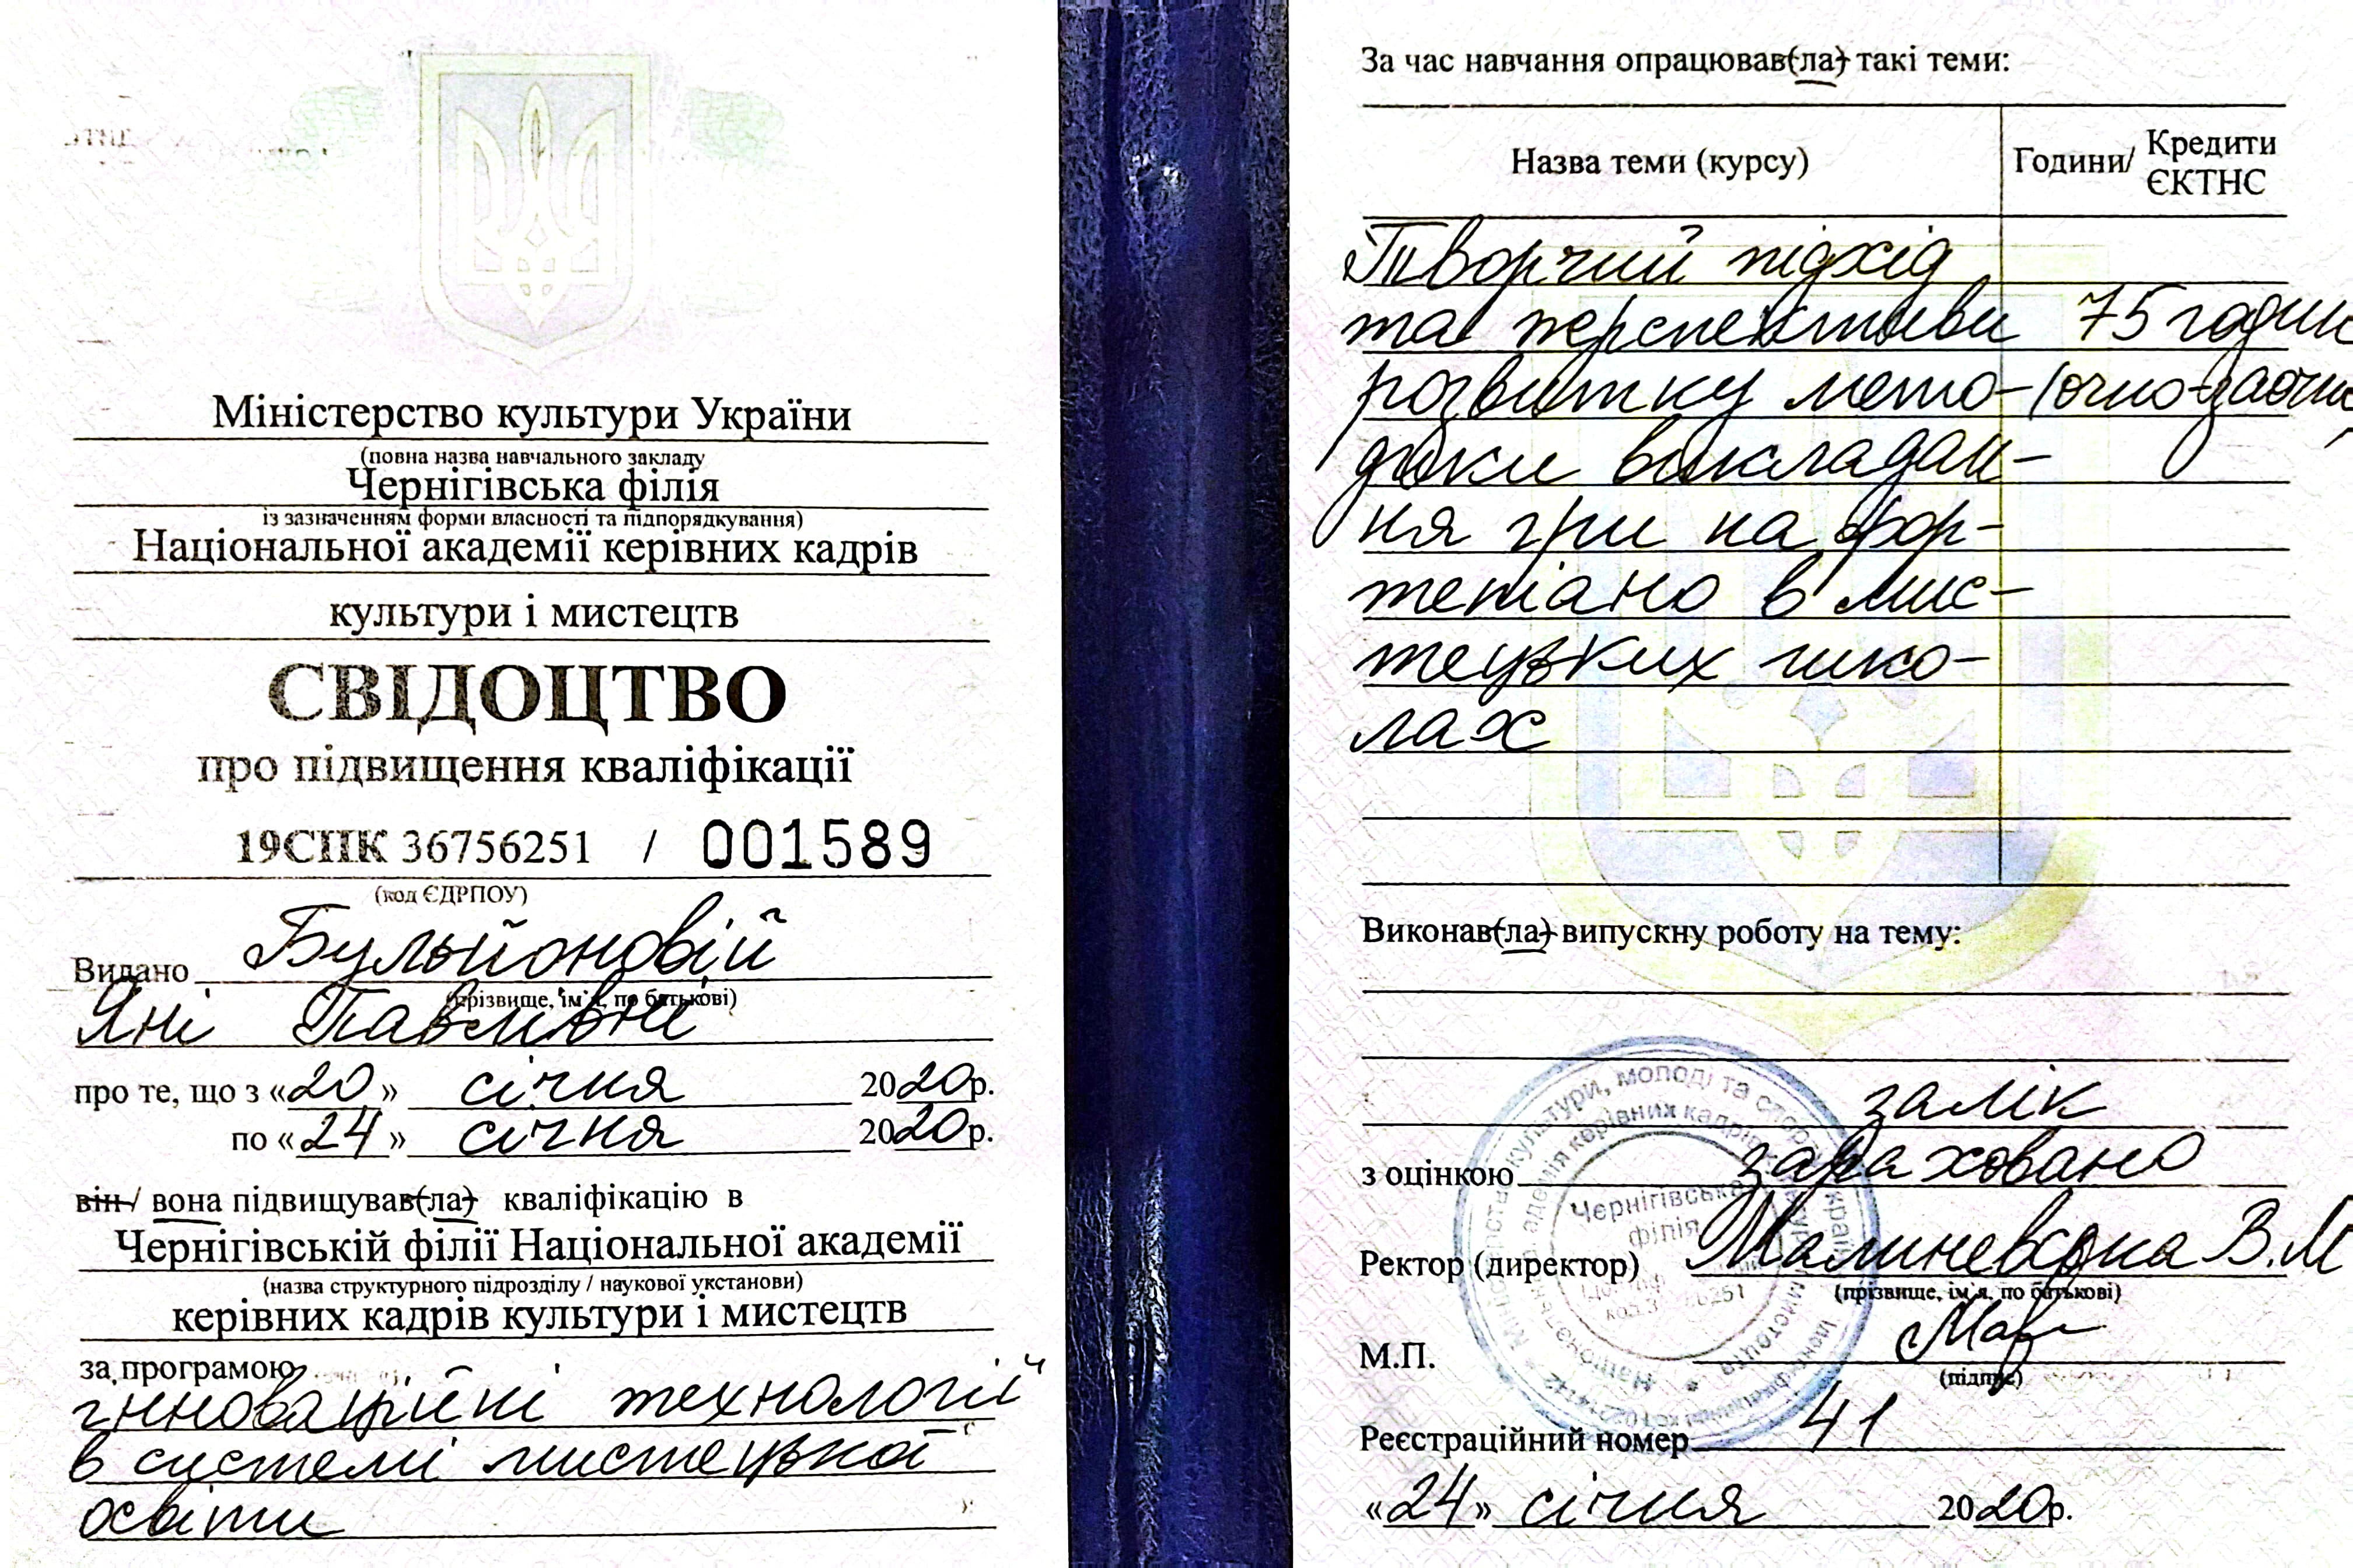 Міністерство культури України
(повна назва навчального закладу
Чернігівська філія
із зазначенням форми власності та підпорядкування)
Національної академії керівних кадрів
культури і мистецтв
СВІДОЦТВО
про підвищення кваліфікації
19СПК 36756251 / 001589
(код ЄДРПОУ)
Видано Бульйоновій
(прізвище, ім'я, по батькові)
Яні Павлівні
про те, що з «20» січня 2020р.
по «24» січня 2020р.
він / вона підвищував(ла) кваліфікацію в
Чернігівській філії Національної академії
(назва структурного підрозділу / наукової укстанови)
керівних кадрів культури і мистецтв
за програмою
"Інноваційні технології
в системі мистецької
освіти
За час навчання опрацював(ла) такі теми:
Назва теми (курсу) Години/ Кредити
ЄКТНС
Творчий підхід
та перспективи 75 годин
розвитку мето- (очно-заочна
дики викладан-
ня гри на фор-
тепіано в мис-
тецьких шко-
лах
Виконав(ла) випускну роботу на тему:
залік
з оцінкою зараховано
Ректор (директор) Малиневська В.М
(прізвище, ім'я, по батькові)
М.П.
(підпис)
Реєстраційний номер 41
«24» січня 2020р.
Чернігівська
філія